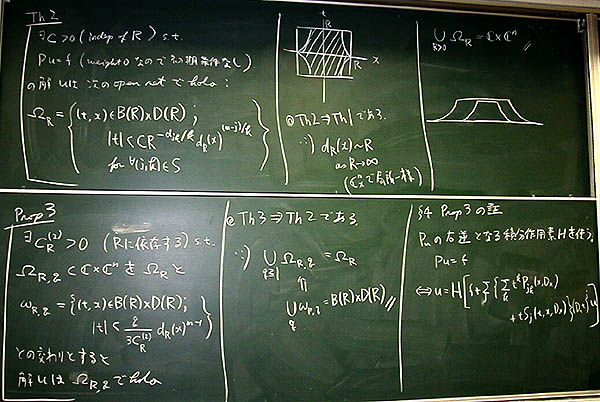 Th 2
∃C>0 (indep of R) s.t.
Pu=f (weight 0 なので初期条件なし)
の解 u は次の open set で holo:
Ω_R = { (t,x)∈B(R)×D(R);
|t|<CR^{-d_{jk}/k} d_R(x)^{(m-j)/k}
for ∀(j,k)∈S }
t
R
R
x
◎Th2⇒Th1 である.
∵) d_R(x)~R
as R→∞
∪_{R>0} Ω_R = ℂ×ℂ^n //
Prop 3
∃C_R^{(2)}>0 (Rに依存する) s.t.
Ω_{R,q}⊂ℂ×ℂ^n を Ω_R と
ω_{R,q}={(t,x)∈B(R)×D(R);
|t|<q/(3C_R^{(2)}) d_R(x)^{m-1}}
との交わりとすると
解 u は Ω_{R,q} で holo
◎Th3⇒Th2 である.
∵) ∪_{q≥1} Ω_{R,q} = Ω_R
⇑
∪_q ω_{R,q}=B(R)×D(R) //
§4 Prop 3 の証
の右逆となる積分作用素Hを使う.
Pu=f